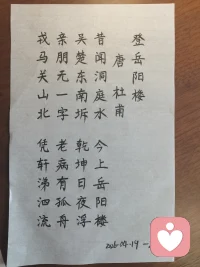 登岳阳楼
唐 杜甫
昔闻洞庭水 今上岳阳楼
吴楚东南坼 乾坤日夜浮
亲朋无一字 老病有孤舟
戎马关山北 凭轩涕泗流